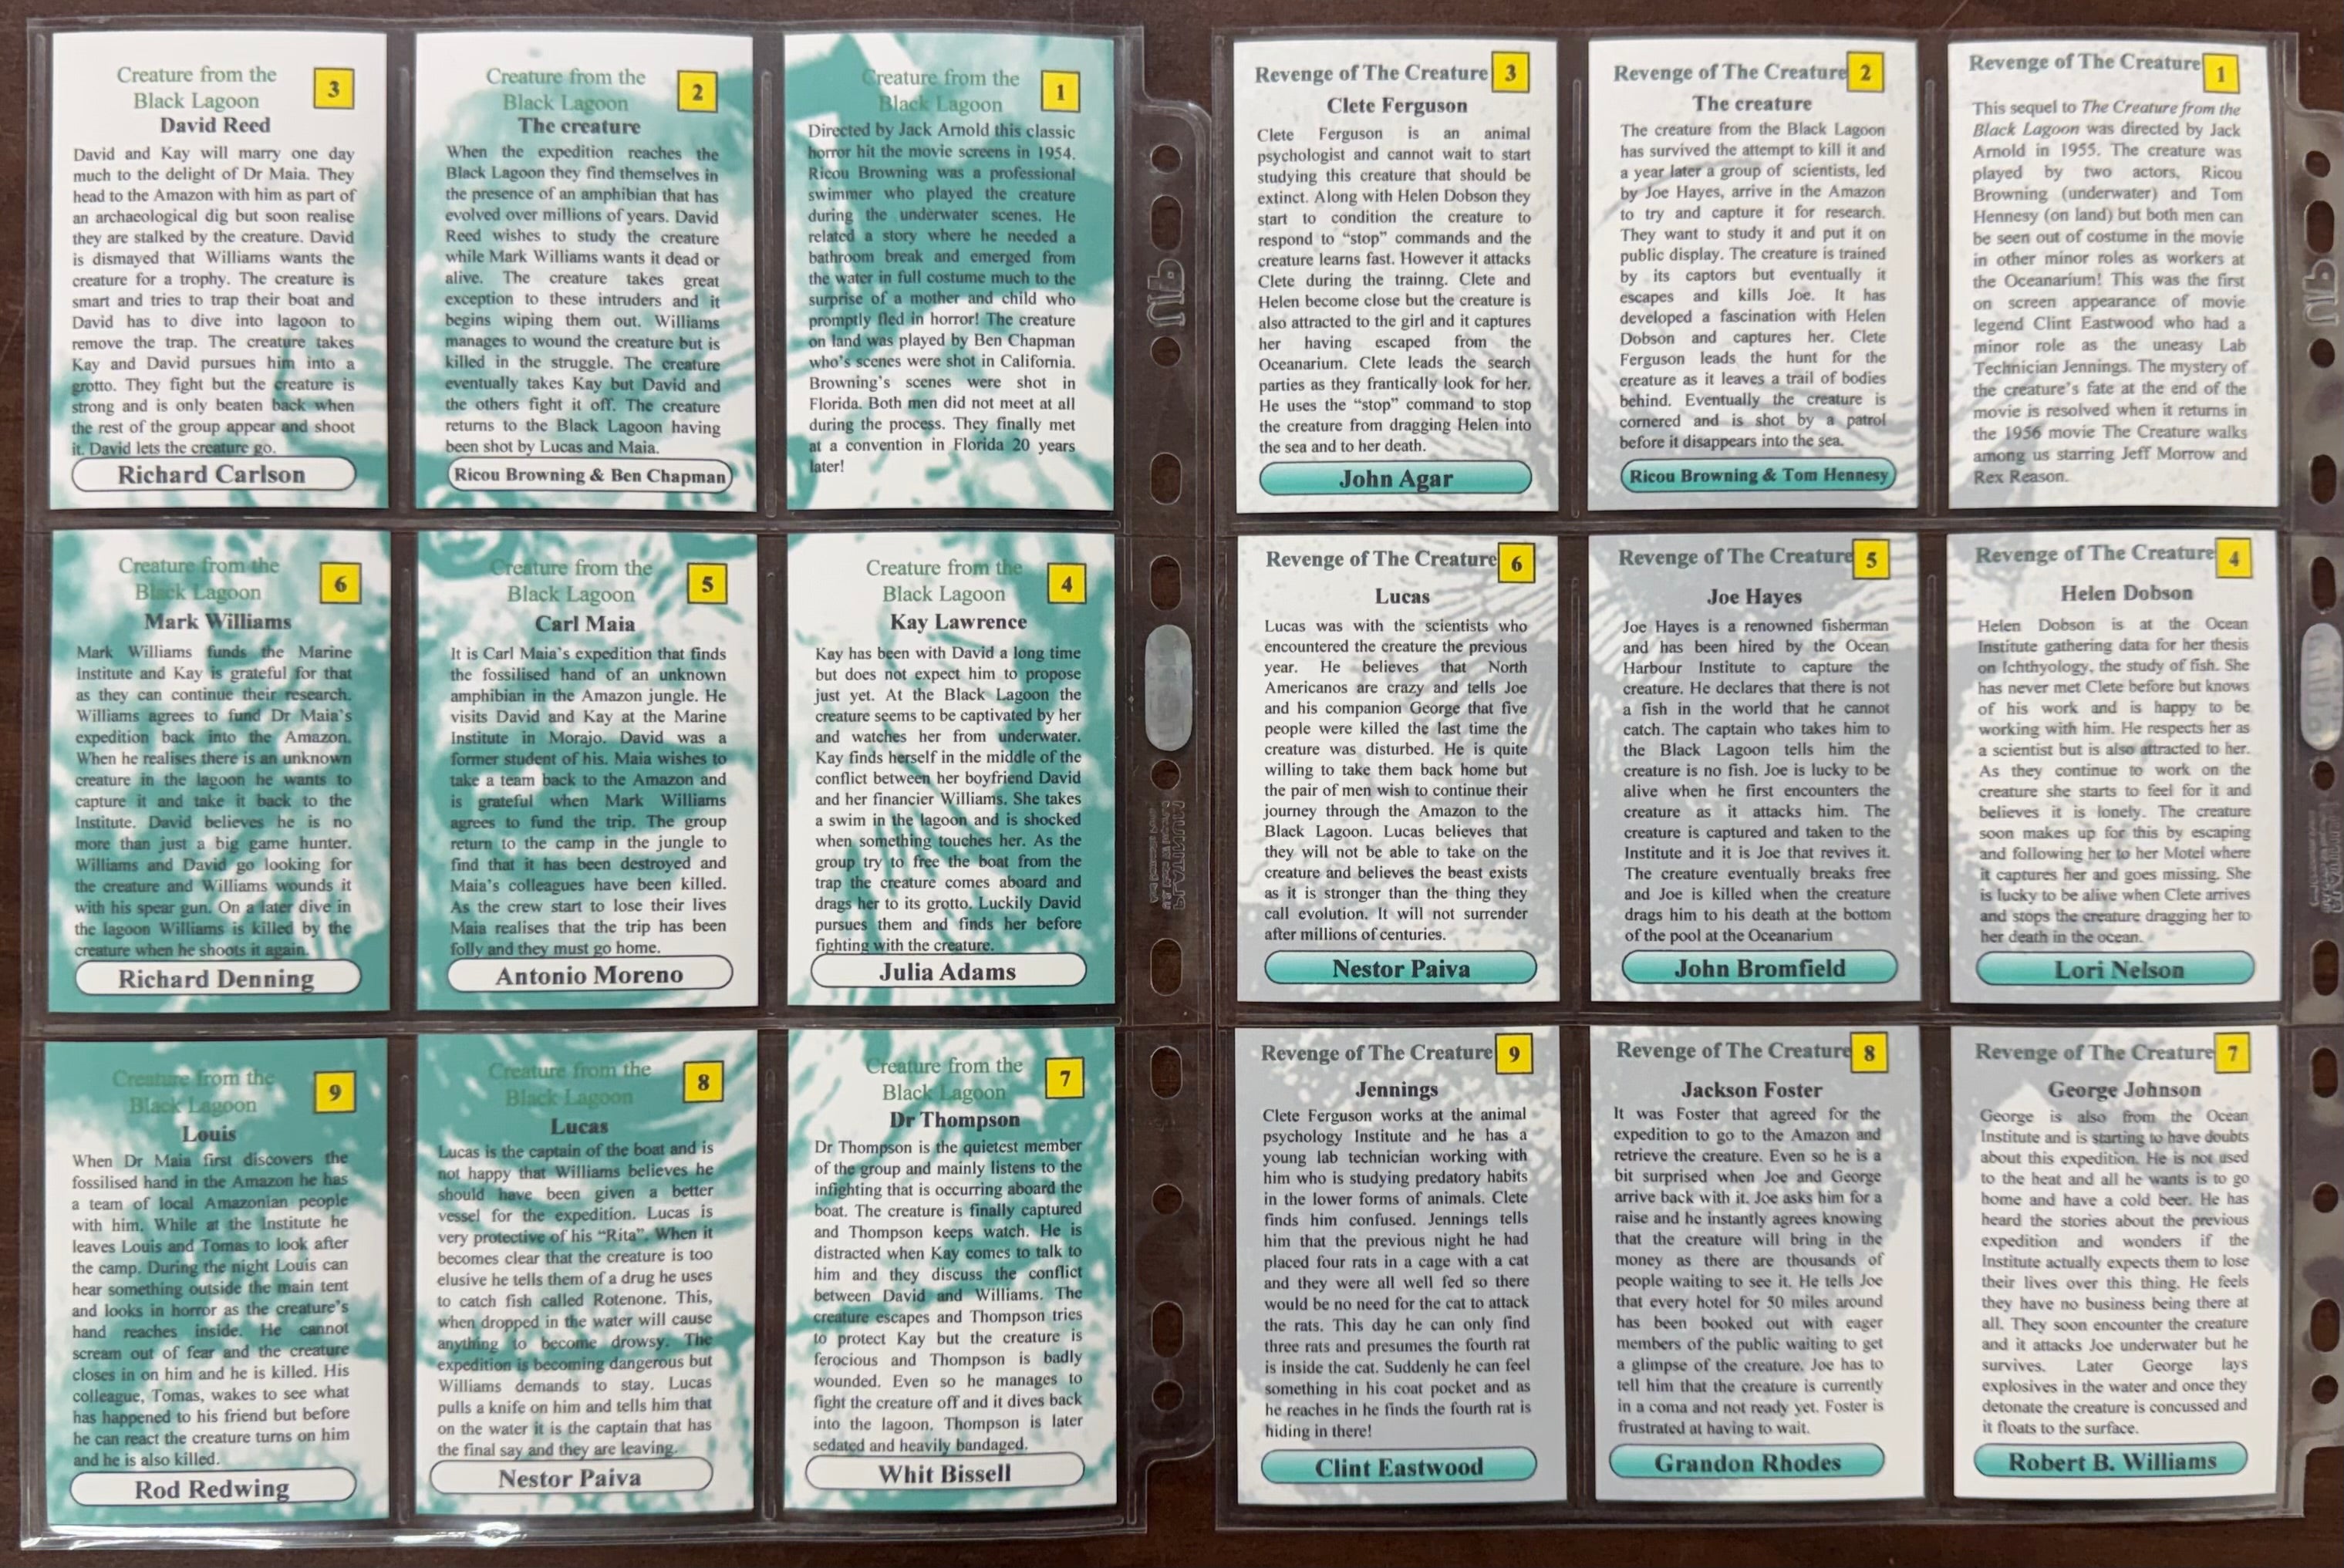 Creature from the
Black Lagoon
3
David Reed
David and Kay will marry one day
much to the delight of Dr Maia. They
head to the Amazon with him as part of
an archaeological dig but soon realise
they are stalked by the creature. David
is dismayed that Williams wants the
creature for a trophy. The creature is
smart and tries to trap their boat and
David has to dive into lagoon to
remove the trap. The creature takes
Kay and David pursues him into a
grotto. They fight but the creature is
strong and is only beaten back when
the rest of the group appear and shoot
it. David lets the creature go.
Richard Carlson
Creature from the
Black Lagoon
2
The creature
When the expedition reaches the
Black Lagoon they find themselves in
the presence of an amphibian that has
evolved over millions of years. David
Reed wishes to study the creature
while Mark Williams wants it dead or
alive. The creature takes great
exception to these intruders and it
begins wiping them out. Williams
manages to wound the creature but is
killed in the struggle. The creature
eventually takes Kay but David and
the others fight it off. The creature
returns to the Black Lagoon having
been shot by Lucas and Maia.
Ricou Browning & Ben Chapman
Creature from the
Black Lagoon
1
Directed by Jack Arnold this classic
horror hit the movie screens in 1954.
Ricou Browning was a professional
swimmer who played the creature
during the underwater scenes. He
related a story where he needed a
bathroom break and emerged from
the water in full costume much to the
surprise of a mother and child who
promptly fled in horror! The creature
on land was played by Ben Chapman
who's scenes were shot in California.
Browning's scenes were shot in
Florida. Both men did not meet at all
during the process. They finally met
at a convention in Florida 20 years
later!
Revenge of The Creature
3
Clete Ferguson
Clete Ferguson is an animal
psychologist and cannot wait to start
studying this creature that should be
extinct. Along with Helen Dobson they
start to condition the creature to
respond to "stop" commands and the
creature learns fast. However it attacks
Clete during the trainng. Clete and
Helen become close but the creature is
also attracted to the girl and it captures
her having escaped from the
Oceanarium. Clete leads the search
parties as they frantically look for her.
He uses the "stop" command to stop
the creature from dragging Helen into
the sea and to her death.
John Agar
Revenge of The Creature
2
The creature
The creature from the Black Lagoon
has survived the attempt to kill it and
a year later a group of scientists, led
by Joe Hayes, arrive in the Amazon
to try and capture it for research.
They want to study it and put it on
public display. The creature is trained
by its captors but eventually it
escapes and kills Joe. It has
developed a fascination with Helen
Dobson and captures her. Clete
Ferguson leads the hunt for the
creature as it leaves a trail of bodies
behind. Eventually the creature is
cornered and is shot by a patrol
before it disappears into the sea.
Ricou Browning & Tom Hennesy
Revenge of The Creature
1
This sequel to The Creature from the
Black Lagoon was directed by Jack
Arnold in 1955. The creature was
played by two actors, Ricou
Browning (underwater) and Tom
Hennesy (on land) but both men can
be seen out of costume in the movie
in other minor roles as workers at
the Oceanarium! This was the first
on screen appearance of movie
legend Clint Eastwood who had a
minor role as the uneasy Lab
Technician Jennings. The mystery of
the creature's fate at the end of the
movie is resolved when it returns in
the 1956 movie The Creature walks
among us starring Jeff Morrow and
Rex Reason.
Creature from the
Black Lagoon
6
Mark Williams
Mark Williams funds the Marine
Institute and Kay is grateful for that
as they can continue their research.
Williams agrees to fund Dr Maia's
expedition back into the Amazon.
When he realises there is an unknown
creature in the lagoon he wants to
capture it and take it back to the
Institute. David believes he is no
more than just a big game hunter.
Williams and David go looking for
the creature and Williams wounds it
with his spear gun. On a later dive in
the lagoon Williams is killed by the
creature when he shoots it again.
Richard Denning
Creature from the
Black Lagoon
5
Carl Maia
It is Carl Maia's expedition that finds
the fossilised hand of an unknown
amphibian in the Amazon jungle. He
visits David and Kay at the Marine
Institute in Morajo. David was a
former student of his. Maia wishes to
take a team back to the Amazon and
is grateful when Mark Williams
agrees to fund the trip. The group
return to the camp in the jungle to
find that it has been destroyed and
Maia's colleagues have been killed.
As the crew start to lose their lives
Maia realises that the trip has been
folly and they must go home.
Antonio Moreno
Creature from the
Black Lagoon
4
Kay Lawrence
Kay has been with David a long time
but does not expect him to propose
just yet. At the Black Lagoon the
creature seems to be captivated by her
and watches her from underwater.
Kay finds herself in the middle of the
conflict between her boyfriend David
and her financier Williams. She takes
a swim in the lagoon and is shocked
when something touches her. As the
group try to free the boat from the
trap the creature comes aboard and
drags her to its grotto. Luckily David
pursues them and finds her before
fighting with the creature.
Julia Adams
Revenge of The Creature
6
Lucas
Lucas was with the scientists who
encountered the creature the previous
year. He believes that North
Americanos are crazy and tells Joe
and his companion George that five
people were killed the last time the
creature was disturbed. He is quite
willing to take them back home but
the pair of men wish to continue their
journey through the Amazon to the
Black Lagoon. Lucas believes that
they will not be able to take on the
creature and believes the beast exists
as it is stronger than the thing they
call evolution. It will not surrender
after millions of centuries.
Nestor Paiva
Revenge of The Creature
5
Joe Hayes
Joe Hayes is a renowned fisherman
and has been hired by the Ocean
Harbour Institute to capture the
creature. He declares that there is not
a fish in the world that he cannot
catch. The captain who takes him to
the Black Lagoon tells him the
creature is no fish. Joe is lucky to be
alive when he first encounters the
creature as it attacks him. The
creature is captured and taken to the
Institute and it is Joe that revives it.
The creature eventually breaks free
and Joe is killed when the creature
drags him to his death at the bottom
of the pool at the Oceanarium
John Bromfield
Revenge of The Creature
4
Helen Dobson
Helen Dobson is at the Ocean
Institute gathering data for her thesis
on Ichthyology, the study of fish. She
has never met Clete before but knows
of his work and is happy to be
working with him. He respects her as
a scientist but is also attracted to her.
As they continue to work on the
creature she starts to feel for it and
believes it is lonely. The creature
soon makes up for this by escaping
and following her to her Motel where
it captures her and goes missing. She
is lucky to be alive when Clete arrives
and stops the creature dragging her to
her death in the ocean.
Lori Nelson
Creature from the
Black Lagoon
9
Louis
When Dr Maia first discovers the
fossilised hand in the Amazon he has
a team of local Amazonian people
with him. While at the Institute he
leaves Louis and Tomas to look after
the camp. During the night Louis can
hear something outside the main tent
and looks in horror as the creature's
hand reaches inside. He cannot
scream out of fear and the creature
closes in on him and he is killed. His
colleague, Tomas, wakes to see what
has happened to his friend but before
he can react the creature turns on him
and he is also killed.
Rod Redwing
Creature from the
Black Lagoon
8
Lucas
Lucas is the captain of the boat and is
not happy that Williams believes he
should have been given a better
vessel for the expedition. Lucas is
very protective of his "Rita". When it
becomes clear that the creature is too
elusive he tells them of a drug he uses
to catch fish called Rotenone. This,
when dropped in the water will cause
anything to become drowsy. The
expedition is becoming dangerous but
Williams demands to stay. Lucas
pulls a knife on him and tells him that
on the water it is the captain that has
the final say and they are leaving.
Nestor Paiva
Creature from the
Black Lagoon
7
Dr Thompson
Dr Thompson is the quietest member
of the group and mainly listens to the
infighting that is occurring aboard the
boat. The creature is finally captured
and Thompson keeps watch. He is
distracted when Kay comes to talk to
him and they discuss the conflict
between David and Williams. The
creature escapes and Thompson tries
to protect Kay but the creature is
ferocious and Thompson is badly
wounded. Even so he manages to
fight the creature off and it dives back
into the lagoon. Thompson is later
sedated and heavily bandaged.
Whit Bissell
Revenge of The Creature
9
Jennings
Clete Ferguson works at the animal
psychology Institute and he has a
young lab technician working with
him who is studying predatory habits
in the lower forms of animals. Clete
finds him confused. Jennings tells
him that the previous night he had
placed four rats in a cage with a cat
and they were all well fed so there
would be no need for the cat to attack
the rats. This day he can only find
three rats and presumes the fourth rat
is inside the cat. Suddenly he can feel
something in his coat pocket and as
he reaches in he finds the fourth rat is
hiding in there!
Clint Eastwood
Revenge of The Creature
8
Jackson Foster
It was Foster that agreed for the
expedition to go to the Amazon and
retrieve the creature. Even so he is a
bit surprised when Joe and George
arrive back with it. Joe asks him for a
raise and he instantly agrees knowing
that the creature will bring in the
money as there are thousands of
people waiting to see it. He tells Joe
that every hotel for 50 miles around
has been booked out with eager
members of the public waiting to get
a glimpse of the creature. Joe has to
tell him that the creature is currently
in a coma and not ready yet. Foster is
frustrated at having to wait.
Grandon Rhodes
Revenge of The Creature
7
George Johnson
George is also from the Ocean
Institute and is starting to have doubts
about this expedition. He is not used
to the heat and all he wants is to go
home and have a cold beer. He has
heard the stories about the previous
expedition and wonders if the
Institute actually expects them to lose
their lives over this thing. He feels
they have no business being there at
all. They soon encounter the creature
and it attacks Joe underwater but he
survives. Later George lays
explosives in the water and once they
detonate the creature is concussed and
it floats to the surface.
Robert B. Williams